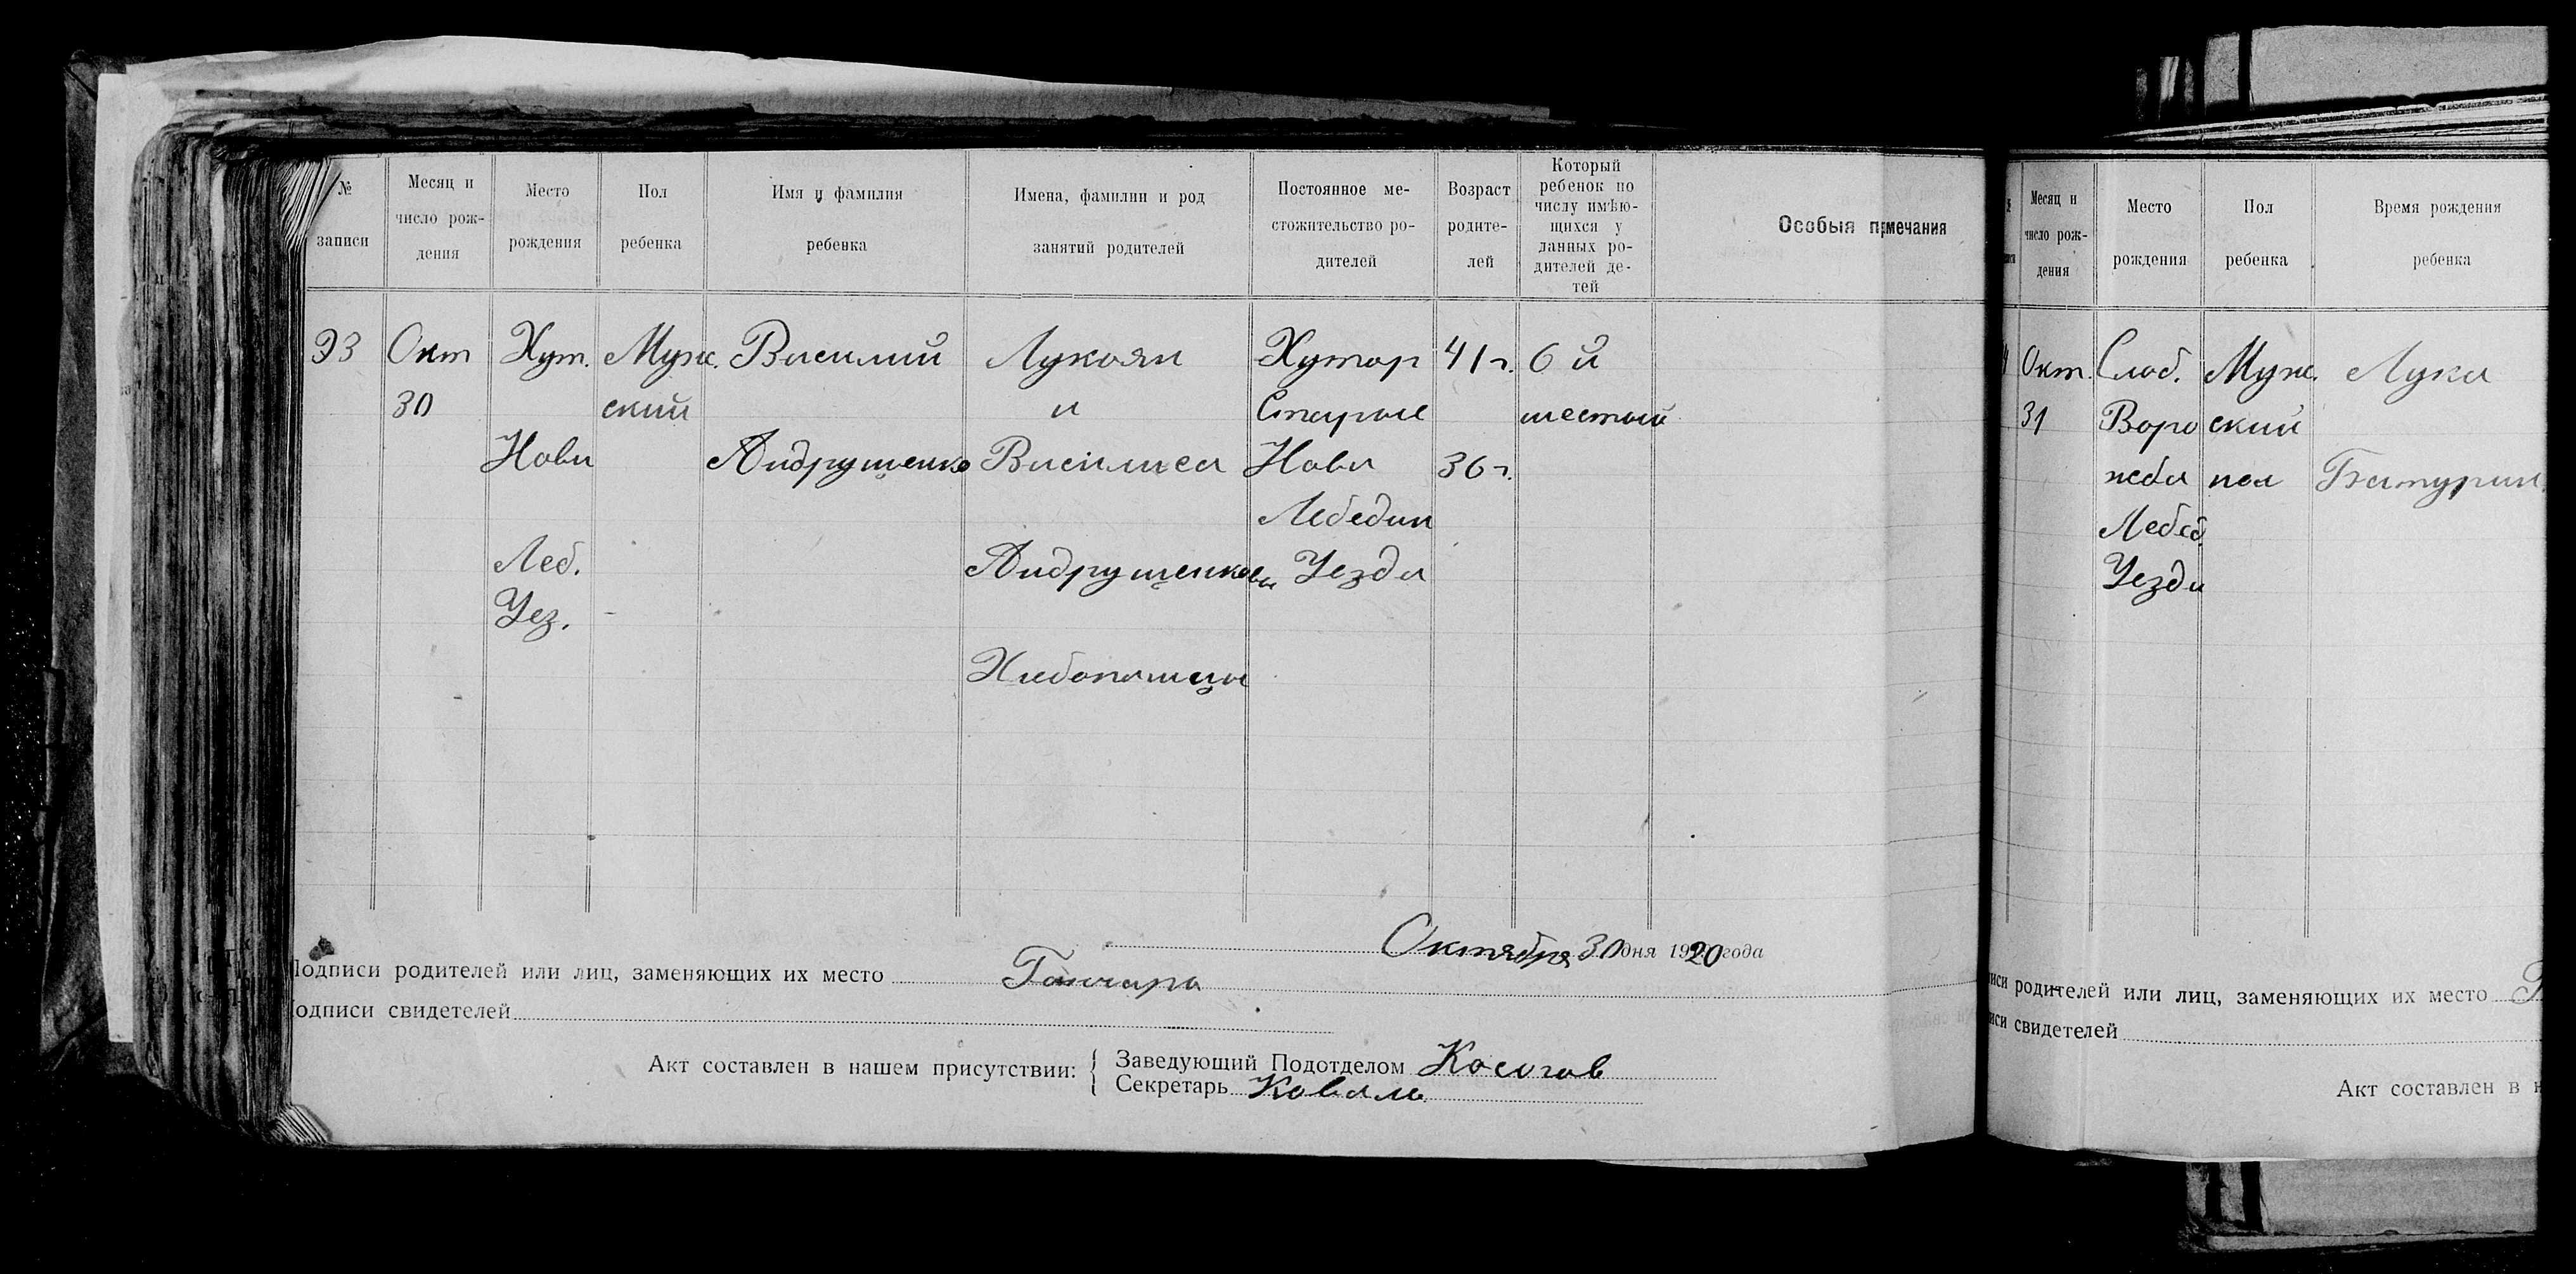 № записи
Месяц и число рождения
Место рождения
Пол ребенка
Имя и фамилия ребенка
Имена, фамилии и род занятий родителей
Постоянное местожительство родителей
Возраст родителей
Который ребенок по числу имѣющихся у данных родителей детей
Особыя примечания
93 Окт Хут. Муж. Василий Лукоян Хутор 41 г. 6 й
30 ский и Старые шестой
Нова Андрущенко Василиса Нова 36 г.
Лебедин
Леб. Андрущенковы Уезда
Уез.
Хлебопашцы
Октября 30 дня 1920 года
Подписи родителей или лиц, заменяющих их место Гончара
Подписи свидетелей
Акт составлен в нашем присутствии:
Заведующий Подотделом Косогов
Секретарь Коваль
Месяц и число рождения
Место рождения
Пол ребенка
Время рождения ребенка
Окт. Слоб. Муж. Лука
31 Воро ский
жба пол Батурин
Лебед.
Уезда
родителей или лиц, заменяющих их место
свидетелей
Акт составлен в